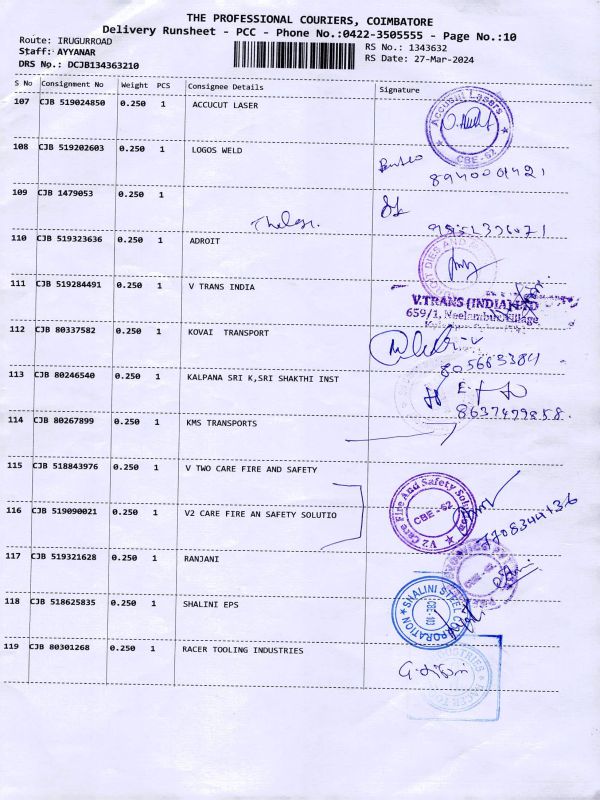 THE PROFESSIONAL COURIERS, COIMBATORE
Delivery Runsheet - PCC - Phone No.:0422-3505555 - Page No.:10
Route: IRUGURROAD
RS No.: 1343632
Staff: AYYANAR
RS Date: 27-Mar-2024
DRS No.: DCJB134363210
S No Consignment No Weight PCS Consignee Details Signature
107 CJB 519024850 0.250 1 ACCUCUT LASER
Accucut Lasers
CBE-62
108 CJB 519202603 0.250 1 LOGOS WELD
109 CJB 1479053 0.250 1
110 CJB 519323636 0.250 1 ADROIT
DIES AND
111 CJB 519284491 0.250 1 V TRANS INDIA
V.TRANS (INDIA) LTD
659/1, Neelambur Village
112 CJB 80337582 0.250 1 KOVAI TRANSPORT
113 CJB 80246540 0.250 1 KALPANA SRI K,SRI SHAKTHI INST
8637499858.
114 CJB 80267899 0.250 1 KMS TRANSPORTS
115 CJB 518843976 0.250 1 V TWO CARE FIRE AND SAFETY
116 CJB 519090021 0.250 1 V2 CARE FIRE AN SAFETY SOLUTIO
V2 Care Fire And Safety Solutions
CBE-62
7708344136
117 CJB 519321628 0.250 1 RANJANI
118 CJB 518625835 0.250 1 SHALINI EPS
SHALINI STEEL CORPORATION
CBE-103
119 CJB 80301268 0.250 1 RACER TOOLING INDUSTRIES